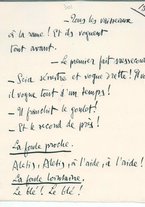 — Tous les vaisseaux
à la rame ! Et ils voguent
tout avant.
— Le premier fait
— Scie senestre et vogue dextre !
il vogue tout d'un temps !
— Il franchit le goulot !
— Et le second de près !
La foule proche.
Aletis, Aletis, à l'aide, à l'aide !
La foule lointaine.
Le blé ! Le blé !